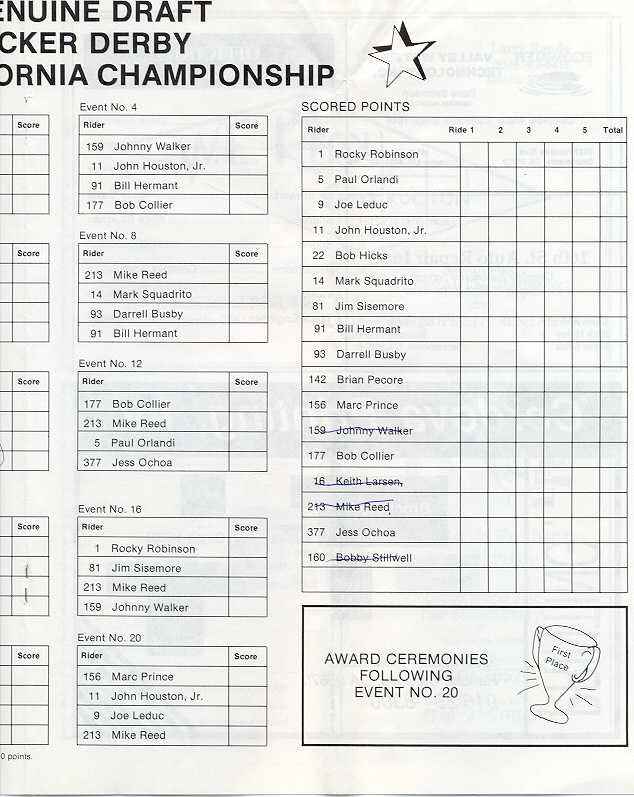 ENUINE DRAFT
CKER DERBY
ORNIA CHAMPIONSHIP
Score
Event No. 4
Rider Score
159 Johnny Walker
11 John Houston, Jr.
91 Bill Hermant
177 Bob Collier
Score
Event No. 8
Rider Score
213 Mike Reed
14 Mark Squadrito
93 Darrell Busby
91 Bill Hermant
Score
Event No. 12
Rider Score
177 Bob Collier
213 Mike Reed
5 Paul Orlandi
377 Jess Ochoa
Score
Event No. 16
Rider Score
1 Rocky Robinson
81 Jim Sisemore
213 Mike Reed
159 Johnny Walker
Score
Event No. 20
Rider Score
156 Marc Prince
11 John Houston, Jr.
9 Joe Leduc
213 Mike Reed
0 points.
SCORED POINTS
Rider Ride 1 2 3 4 5 Total
1 Rocky Robinson
5 Paul Orlandi
9 Joe Leduc
11 John Houston, Jr.
22 Bob Hicks
14 Mark Squadrito
81 Jim Sisemore
91 Bill Hermant
93 Darrell Busby
142 Brian Pecore
156 Marc Prince
159 Johnny Walker
177 Bob Collier
16 Keith Larsen,
213 Mike Reed
377 Jess Ochoa
160 Bobby Stillwell
AWARD CEREMONIES
FOLLOWING
EVENT NO. 20
First
Place